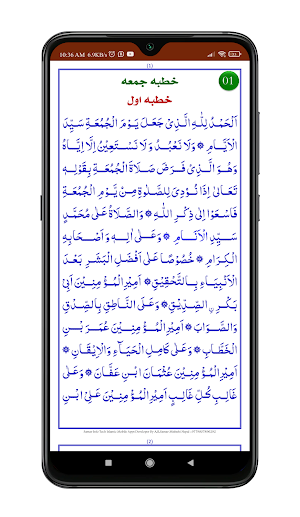 10:36 AM 6.9KB/s
(1)
خطبه جمعه
01
خطبه اول
اَلْحَمْدُ لِلّٰهِ الَّذِیْ جَعَلَ یَوْمَ الْجُمُعَةِ سَیِّدَ
الْاَیَّامِ ۞ وَلَا نَعْبُدُ وَلَا نَسْتَعِیْنُ اِلَّا اِیَّاهُ
وَهُوَ الَّذِیْ فَرَضَ صَلَاةَ الْجُمُعَةِ بِقَوْلِهٖ
تَعَالٰی اِذَا نُوْدِیَ لِلصَّلٰوةِ مِنْ یَّوْمِ الْجُمُعَةِ
فَاسْعَوْا اِلٰی ذِكْرِ اللّٰهِ ۞ وَالصَّلَاةُ عَلٰی مُحَمَّدٍ
سَیِّدِ الْاَنَامِ ۞ وَعَلٰی اٰلِهٖ وَاَصْحَابِهِ
الْكِرَامِ ۞ خُصُوْصًا عَلٰی اَفْضَلِ الْبَشَرِ بَعْدَ
الْاَنْبِیَاءِ بِالتَّحْقِیْقِ ۞ اَمِیْرِ الْمُؤْمِنِیْنَ اَبِیْ
بَكْرِ ۨالصِّدِّیْقِ ۞ وَعَلَی النَّاطِقِ بِالصِّدْقِ
وَالصَّوَابِ ۞ اَمِیْرِ الْمُؤْمِنِیْنَ عُمَرَ بْنِ
الْخَطَّابِ ۞ وَعَلٰی كَامِلِ الْحَیَآءِ وَالْاِیْقَانِ ۞
اَمِیْرِ الْمُؤْمِنِیْنَ عُثْمَانَ ابْنِ عَفَّانَ ۞ وَعَلٰی
غَالِبِ كُلِّ غَالِبٍ اَمِیْرِ الْمُؤْمِنِیْنَ عَلِیِّ ابْنِ
(2)